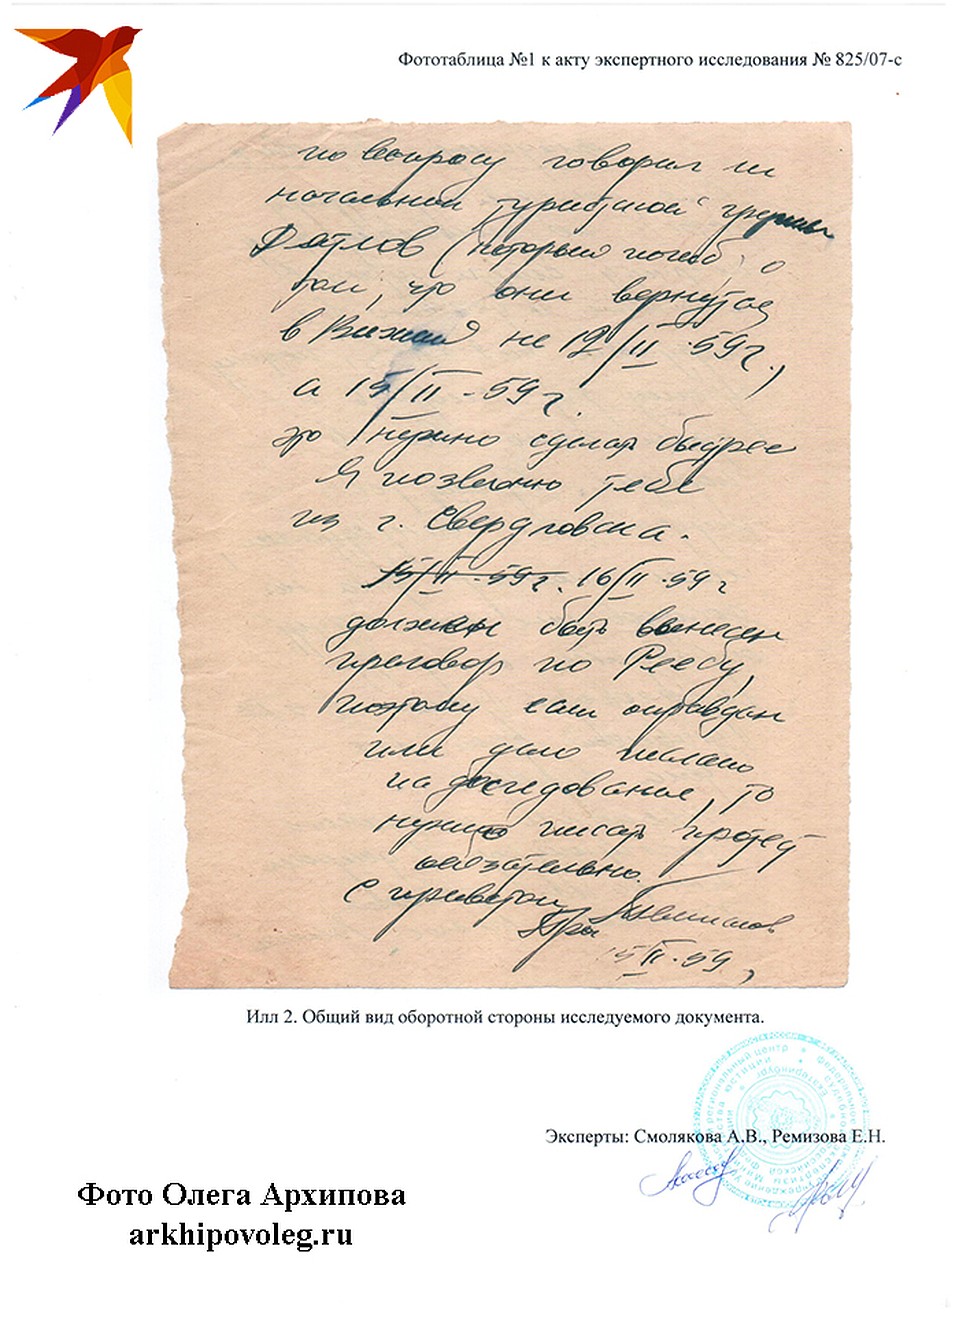 Фототаблица №1 к акту экспертного исследования № 825/07-с
по вопросу говорил ли
начальник туристской группы
Дятлов (который погиб) о
том, что они вернутся
в Вижай не 12/II-59г.,
а 15/II-59г.
это нужно сделать быстрее
Я позвоню тебе
из г. Свердловска.
15/II-59г. 16/II-59г
должен быть вынесен
приговор по Реебу,
поэтому если оправдан
или дело послано
на доследование, то
нужно писать протест
обязательно.
с приветом
15/II-59,
Илл 2. Общий вид оборотной стороны исследуемого документа.
Эксперты: Смолякова А.В., Ремизова Е.Н.
Фото Олега Архипова
arkhipovoleg.ru